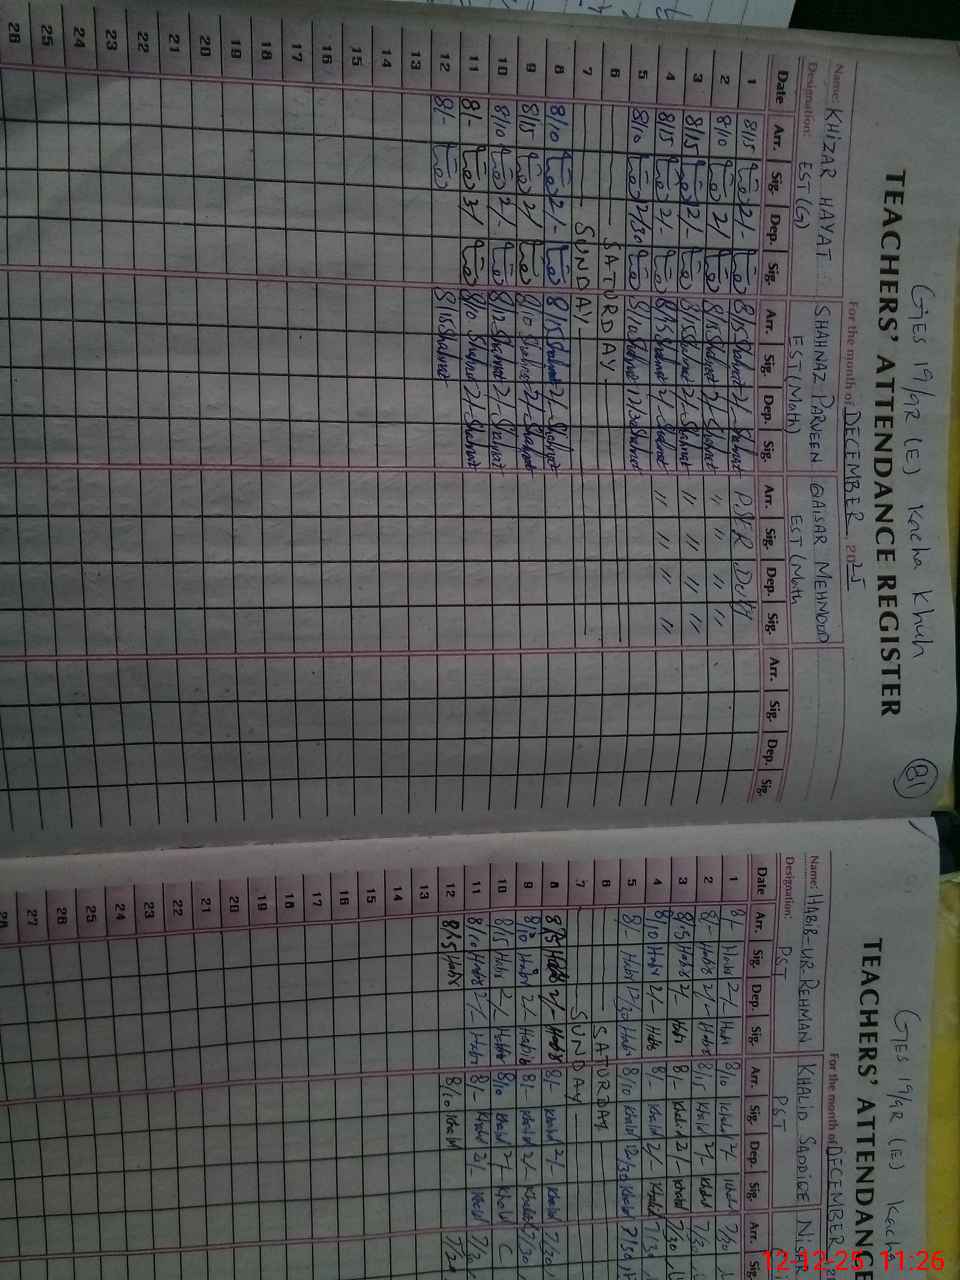 GES 19/9R (E) Kacha Khuh
81
TEACHERS' ATTENDANCE REGISTER
For the month of DECEMBER, 2025
Name: KHIZAR HAYAT SHAHNAZ PARVEEN QAISAR MEHMOOD
Designation: EST(G) EST(Math) EST(Math
Date Arr. Sig. Dep. Sig. Arr. Sig. Dep. Sig. Arr. Sig. Dep. Sig. Arr. Sig. Dep. Sig.
1 8/15 2/- 8/15 Shahnaz 2/- Shahnaz Duty
2 8/10 2/ 8/15 Shahnaz 2/- Shahnaz " " " "
3 8/15 2/- 8/15 Shahnaz 2/- Shahnaz " " " "
4 8/15 2/- 8/15 Shahnaz 2/- Shahnaz " " " "
5 8/10 12/30 8/10 Shahnaz 12/30 Shahnaz
6 SATURDAY
7 SUNDAY
8 8/10 2/- 8/15 Shahnaz 2/- Shahnaz
9 8/15 2/ 8/10 Shahnaz 2/- Shahnaz
10 8/10 2/- 8/12 Shahnaz 2/- Shahnaz
11 8/- 3/ 8/10 Shahnaz 2/- Shahnaz
12 8/- 8/15 Shahnaz
13
14
15
16
17
18
19
20
21
22
23
24
25
26
GES 19/9R (E) Kacha
TEACHERS' ATTENDANCE
For the month of DECEMBER
Name: HABIB-UR-REHMAN KHALID SADDIQE
Designation: PST PST
Date Arr. Sig. Dep. Sig. Arr. Sig. Dep. Sig. Arr. Sig.
1 8/- Habs 2/- Habs 8/10 Khalid 2/- Khalid 7/30
2 8/- Habs 2/- Habs 8/15 Khalid 2/- Khalid 7/30
3 8/15 Habs 2/- Habs 8/- Khalid 2/- Khalid 7/30
4 8/10 Habs 2/- Habs 8/- Khalid 2/- Khalid 7/30
5 8/- Habs 12/30 Habs 8/10 Khalid 12/30 Khalid 7/30
6 SATURDAY
7 SUNDAY
8 8/15 Habs 2/- Habs 8/- Khalid 2/- Khalid 7/30
9 8/10 Habs 2/- Habib 8/- Khalid 2/- Khalid 7/30
10 8/15 Habs 2/- Habs 8/10 Khalid 2/- Khalid C
11 8/10 Habs 2/- Habs 8/- Khalid 2/- Khalid 7/30
12 8/15 Habs 8/10 Khalid 7/20
13
14
15
16
17
18
19
20
21
22
23
24
25
26
27
28
12-12-25 11:26